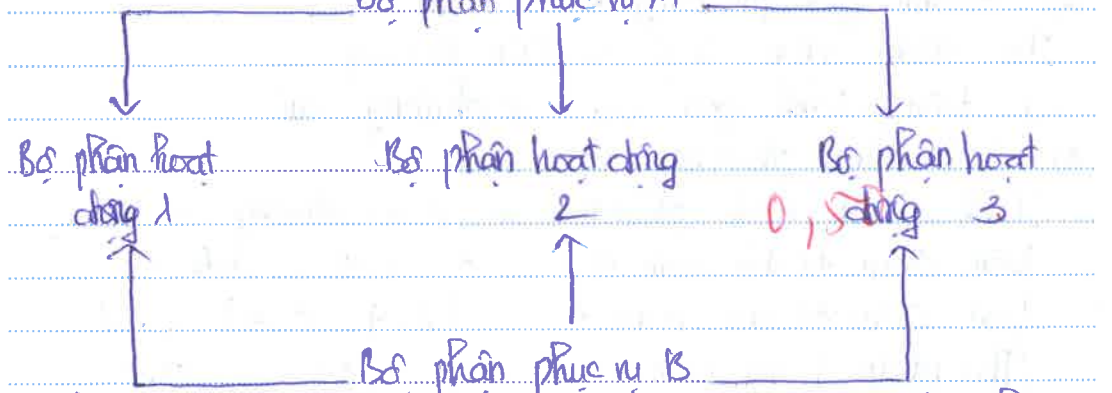 Bộ phận phục vụ A
Bộ phận hoạt động 1
Bộ phận hoạt động 2
Bộ phận hoạt động 3
0,5
Bộ phận phục vụ B